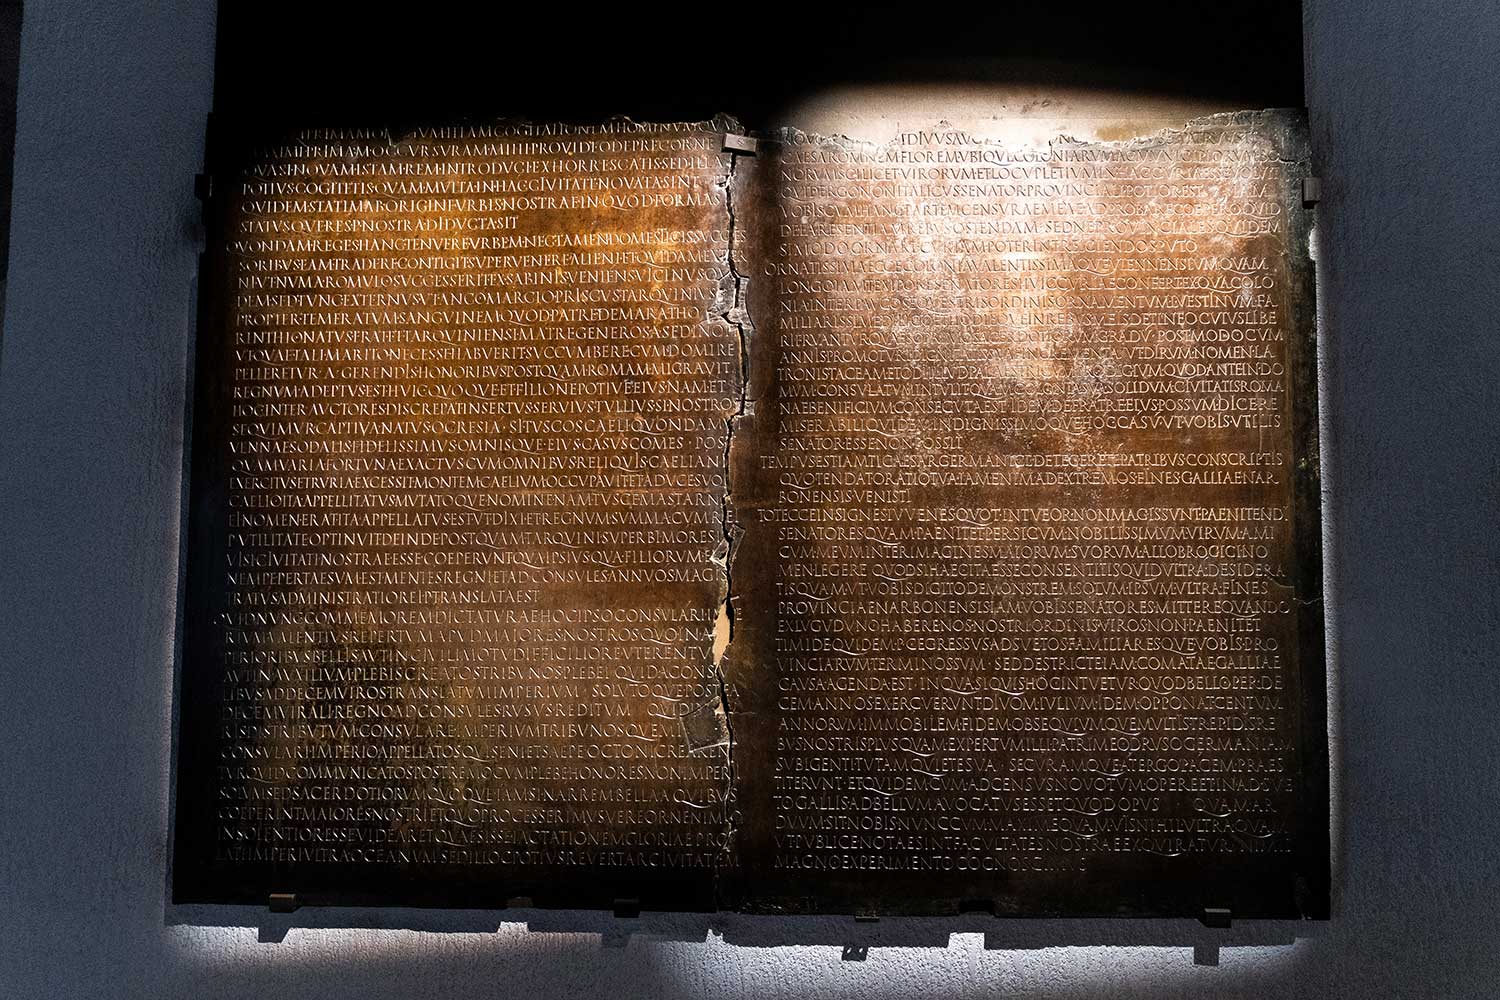 PRIMAM OMNIVM ILLAM COGITATIONEM HOMINVM QV
MAXIME PRIMAM OCCVRSVRAM MIHI PROVIDEO DEPRECOR NE
QVASI NOVAM ISTAM REM INTRODVCI EXHORRESCATIS SED ILLA
POTIVS COGITETIS QVAM MVLTA IN HAC CIVITATE NOVATA SINT ET
QVIDEM STATIM AB ORIGINE VRBIS NOSTRAE IN QVOD FORMAS
STATVSQVE RES P NOSTRA DIDVCTA SIT
QVONDAM REGES HANC TENVERE VRBEM NEC TAMEN DOMESTICIS SVCCES
SORIBVS EAM TRADERE CONTIGIT SVPERVENERE ALIENI ET QVIDAM EXTER
NI VT NVMA ROMVLO SVCCESSERIT EX SABINIS VENIENS VICINVS QVI
DEM SED TVNC EXTERNVS VT ANCO MARCIO PRISCVS TARQVINIVS
PROPTER TEMERATVM SANGVINEM QVOD PATRE DEMARATHO
RINTHIO NATVS ERAT ET TARQVINIENSI MATRE GENEROSA SED INOPI
VT QVAE TALI MARITO NECESSE HABVERIT SVCCVMBERE CVM DOMI RE
PELLERETVR A · GERENDIS HONORIBVS POSTQVAM ROMAM MIGRAVIT
REGNVM ADEPTVS EST HVIC QVOQVE ET FILIO NEPOTIVE EIVS NAM ET
HOC INTER AVCTORES DISCREPAT INSERTVS SERVIVS TVLLIVS SI NOSTROS
SEQVIMVR CAPTIVA NATVS OCRESIA · SI TVSCOS CAELI QVONDAM
VENNAE SODALIS FIDELISSIMVS OMNISQVE · EIVS CASVS COMES · POST
QVAM VARIA FORTVNA EXACTVS CVM OMNIBVS RELIQVIS CAELIANI
EXERCITVS ETRVRIA EXCESSIT MONTEM CAELIVM OCCVPAVIT ET A DVCE SVO
CAELIO ITA APPELLITATVS MVTATOQVE NOMINE NAM TVSCE MASTARNA
EI NOMEN · ERAT ITA APPELLATVS EST VT DIXI ET REGNVM SVMMA CVM REI
P VTILITATE OPTINVIT DEINDE POSTQVAM TARQVINI SVPERBI MORES IN
VISI CIVITATI NOSTRAE ESSE COEPERVNT QVA IPSIVS QVA FILIORVM EI
NEMPE PERTAESVM EST MENTES REGNI ET AD CONSVLES ANNVOS MAGIS
TRATVS ADMINISTRATIO REI P TRANSLATA EST
QVID NVNC COMMEMOREM DICTATVRAE HOC IPSO CONSVLARI
RIVM VALENTIVS REPERTVM APVD MAIORES NOSTROS QVO IN A
PERIORIBVS BELLIS AVT IN CIVILI MOTV DIFFICILIORE VTERENTVR
AVT IN AVXILIVM PLEBIS CREATOS TRIBVNOS PLEBEI QVID A CONSV
LIBVS AD DECEMVIROS TRANSLATVM IMPERIVM · SOLVTOQVE POSTEA
DECEMVIRALI REGNO AD CONSVLES RVSVS REDITVM QVID
RIS DISTRIBVTVM CONSVLARE IMPERIVM TRIBVNOSQVE MIL
CONSVLARI IMPERIO APPELLATOS QVI SENI ET SAEPE OCTONI CREAREN
TVR QVID COMMVNICATOS POSTREMO CVM PLEBE HONORES NON IMPERI
SOLVM SED SACERDOTIORVM QVOQVE IAM SI NARREM BELLA A QVIBVS
COEPERINT MAIORES NOSTRI ET QVO PROCESSERIMVS VEREOR NE NIMIO
INSOLENTIOR ESSE VIDEAR ET QVAESISSE IACTATIONEM GLORIAE PRO
LATI IMPERI VLTRA OCEANVM SED ILLOC POTIVS REVERTAR CIVITATEM
DIVVS AVG
CAESAR OMNEM FLOREM VBIQVE COLONIARVM AC MVNICIPIORVM BO
NORVM SCILICET VIRORVM ET LOCVPLETIVM IN HAC CVRIA ESSE VOLVIT
QVID ERGO NON ITALICVS SENATOR PROVINCIALI POTIOR EST IAM
VOBIS CVM HANC PARTEM CENSVRAE MEAE ADPROBARE COEPERO QVID
DE EA RE SENTIAM REBVS OSTENDAM SED NE PROVINCIALES QVIDEM
SI MODO ORNARE CVRIAM POTERINT REICIENDOS PVTO
ORNATISSIMA ECCE COLONIA VALENTISSIMAQVE VIENNENSIVM QVAM
LONGO IAM TEMPORE SENATORES HVIC CVRIAE CONFERT EX QVA COLO
NIA INTER PAVCOS EQVESTRIS ORDINIS ORNAMENTVM L VESTINVM FA
MILIARISSIME DILIGO ET HODIEQVE IN REBVS MEIS DETINEO CVIVS LIBE
RI FRVANTVR QVAESO PRIMO SACERDOTIORVM GRADV POST MODO CVM
ANNIS PROMOTVRI DIGNITATIS SVAE INCREMENTA VT DIRVM NOMEN LA
TRONIS TACEAM ET ODI ILLVD PALAESTRICVM PRODIGIVM QVOD ANTE IN DO
MVM CONSVLATVM INTVLIT QVAM COLONIA SVA SOLIDVM CIVITATIS ROMA
NAE BENIFICIVM CONSECVTA EST IDEM DE FRATRE EIVS POSSVM DICERE
MISERABILI QVIDEM INDIGNISSIMOQVE HOC CASV VT VOBIS VTILIS
SENATOR ESSE NON POSSIT
TEMPVS EST IAM TI CAESAR GERMANICE DETEGERE TE PATRIBVS CONSCRIPTIS
QVO TENDAT ORATIO TVA IAM ENIM AD EXTREMOS FINES GALLIAE NAR
BONENSIS VENISTI
TOT ECCE INSIGNES IVVENES QVOT INTVEOR NON MAGIS SVNT PAENITENDI
SENATORES QVAM PAENITET PERSICVM NOBILISSIMVM VIRVM AMI
CVM MEVM INTER IMAGINES MAIORVM SVORVM ALLOBROGICI NO
MEN LEGERE QVOD SI HAEC ITA ESSE CONSENTITIS QVID VLTRA DESIDERA
TIS QVAM VT VOBIS DIGITO DEMONSTREM SOLVM IPSVM VLTRA FINES
PROVINCIAE NARBONENSIS IAM VOBIS SENATORES MITTERE QVANDO
EX LVGVDVNO HABERE NOS NOSTRI ORDINIS VIROS NON PAENITET
TIMIDE QVIDEM P C EGRESSVS ADSVETOS FAMILIARESQVE VOBIS PRO
VINCIARVM TERMINOS SVM · SED DESTRICTE IAM COMATAE GALLIAE
CAVSA AGENDA EST · IN QVA SI QVIS HOC INTVETVR QVOD BELLO PER DE
CEM ANNOS EXERCVERVNT DIVOM IVLIVM IDEM OPPONAT CENTVM
ANNORVM IMMOBILEM FIDEM OBSEQVIVMQVE MVLTIS TREPIDIS RE
BVS NOSTRIS PLVS QVAM EXPERTVM ILLI PATRI MEO DRVSO GERMANIAM
SVBIGENTI TVTAM QVIETE SVA · SECVRAMQVE A TERGO PACEM PRAES
TITERVNT · ET QVIDEM CVM AD CENSVS NOVO TVM OPERE ET INADSVE
TO GALLIS AD BELLVM AVOCATVS ESSET QVOD OPVS QVAM AR
DVVM SIT NOBIS NVNC CVM MAXIME QVAMVIS NIHIL VLTRA QVAM
VT PVBLICE NOTAE SINT FACVLTATES NOSTRAE EXQVIRATVR NIMIS
MAGNO EXPERIMENTO COGNOSCIMVS